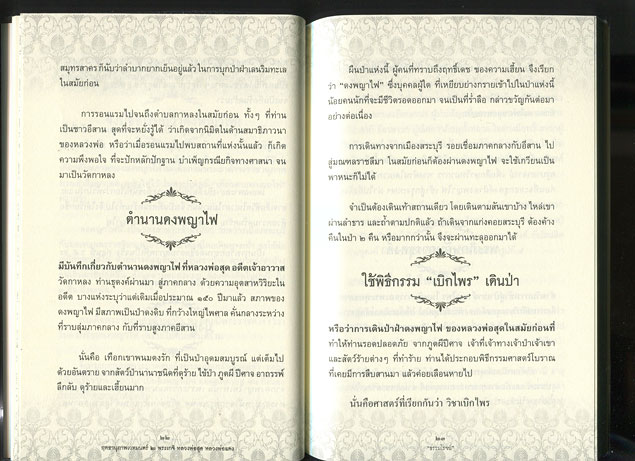 สมุทรสาคร ก็นับว่าลำบากยากเย็นอยู่แล้ว ในการบุกป่าฝ่าเลนริมทะเล
ในสมัยก่อน
การรอนแรมไปจนถึงตำบลกาหลงในสมัยก่อน ทั้งๆ ที่ท่าน
เป็นชาวอีสาน สุดที่จะหยั่งรู้ได้ ว่าเกิดจากนิมิตในด้านสมาธิภาวนา
ของหลวงพ่อ หรือว่าเมื่อรอนแรมไปพบสถานที่แห่งนั้นแล้ว ก็เกิด
ความพึงพอใจ ที่จะปักหลักปักฐาน บำเพ็ญกรณียกิจทางศาสนา จน
มาเป็นวัดกาหลง
ตำนานดงพญาไฟ
มีบันทึกเกี่ยวกับตำนานดงพญาไฟ ที่หลวงพ่อสุด อดีตเจ้าอาวาส
วัดกาหลง ท่านธุดงค์ผ่านมา สู่ภาคกลาง ด้วยความอุตสาหวิริยะใน
อดีต บางแห่งระบุว่าแต่เดิมเมื่อประมาณ ๑๕๐ ปีมาแล้ว สภาพของ
ดงพญาไฟ มีสภาพเป็นป่าดงดิบ ที่กว้างใหญ่ไพศาล คั่นกลางระหว่าง
ที่ราบลุ่มภาคกลาง กับที่ราบสูงภาคอีสาน
นั่นคือ เทือกเขาพนมดงรัก ที่เป็นป่าอุดมสมบูรณ์ แต่เต็มไป
ด้วยอันตราย จากสัตว์ป่านานาชนิดที่ดุร้าย ไข้ป่า ภูตผี ปีศาจ อาถรรพ์
ลึกลับ ดุร้ายและเฮี้ยนมาก
๒๒
พระเกจิ หลวงพ่อสุด หลวงพ่อแดง
ผืนป่าแห่งนี้ ผู้คนที่ทราบถึงฤทธิ์เดช ของความเฮี้ยน จึงเรียก
ว่า “ดงพญาไฟ” ซึ่งบุคคลผู้ใด ที่เหยียบย่างกรายเข้าไปในป่าแห่งนี้
น้อยคนนักที่จะมีชีวิตรอดออกมา จนเป็นที่ร่ำลือ กล่าวขวัญกันต่อมา
อย่างต่อเนื่อง
การเดินทางจากเมืองสระบุรี รอยเชื่อมภาคกลางกับอีสาน ไป
สู่มณฑลราชสีมา ในสมัยก่อนก็ต้องผ่านดงพญาไฟ จะใช้เกวียนเป็น
พาหนะก็ไม่ได้
จำเป็นต้องเดินเท้าสถานเดียว โดยเดินตามสันเขาบ้าง ไหล่เขา
ผ่านลำธาร และถ้ำตามปกติแล้ว ถ้าเดินจากแก่งคอยสระบุรี ต้องค้าง
คืนในป่า ๒ คืน หรือมากกว่านั้น จึงจะผ่านทะลุออกมาได้
ใช้พิธีกรรม “เบิกไพร” เดินป่า
หรือว่าการเดินป่าฝ่าดงพญาไฟ ของหลวงพ่อสุดในสมัยก่อนที่
ทำให้ท่านรอดปลอดภัย จากภูตผีปีศาจ เจ้าที่เจ้าทางเจ้าป่าเจ้าเขา
และสัตว์ร้ายต่างๆ ที่ทำร้าย ท่านได้ประกอบพิธีกรรมศาสตร์โบราณ
ที่เคยมีการสืบสานมา แล้วค่อยเลือนหายไป
นั่นคือศาสตร์ที่เรียกกันว่า วิชาเบิกไพร
๒๓